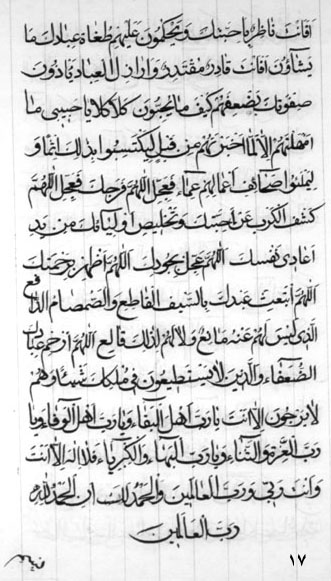 افانت ناظر يا حبيبك ويحكمون عليهم طغاة عبادك ما
يشاؤن افانت قادر مقتدر واراذل العباد ياذون
صفوتك يضعفهم كيف ما يحبون كلا كلا يا حبيبى ما
امهلتهم الا لما اخبرتهم من قبل ليكتسبوا بذلك اثما و
ليملئوا صحائف اعمالهم عماء فعجل اللهم فرجك فعجل اللهم
كشف الكرب عن احبتك وتخليص اوليائك من يد
اعادى نفسك اللهم عجل بجودك اللهم اظهر برحمتك
اللهم ابتعث عبدك بالسيف القاطع والصمصام الدافع
الذى ليس لهم عنه مانع ولا لهم لذلك قالع اللهم ارحم عبادك
الضعفاء والذين لا يستطيعون فى ملكك شيئا وهم
لا يرجون الا انت يا رب اهل البقاء ويا رب اهل الوفاء ويا
رب العزة والثناء ويا رب البهاء والكبرياء فلا اله الا انت
وانت ربى ورب العالمين والحمد لك ان الحمد لله
رب العالمين
١٧